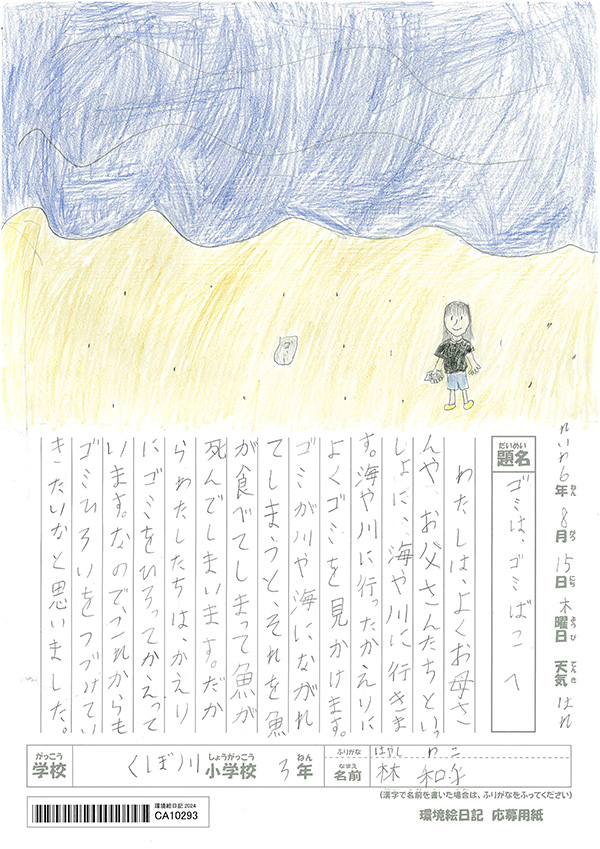 ゴミ
れいわ6年ねん 8月がつ 15日にち 木曜日ようび 天気てんき はれ
題名だいめい
ゴミは、ゴミばこへ
わたしは、よくお母さ
んや、お父さんたちといっ
しょに、海や川に行きま
す。海や川に行ったかえりに
よくゴミを見かけます。
ゴミが川や海にながれ
てしまうと、それを魚
が食べてしまって魚が
死んでしまいます。だか
らわたしたちは、かえり
にゴミをひろってかえって
います。なので、これからも
ゴミひろいをつづけてい
きたいなと思いました。
がっこう しょうがっこう ねん
学校 くぼ川 小学校 3年
ふりがな はやし わこ
なまえ
名前 林 和
(漢字で名前を書いた場合は、ふりがなをふってください)
環境絵日記 2024
CA10293
環境絵日記 応募用紙